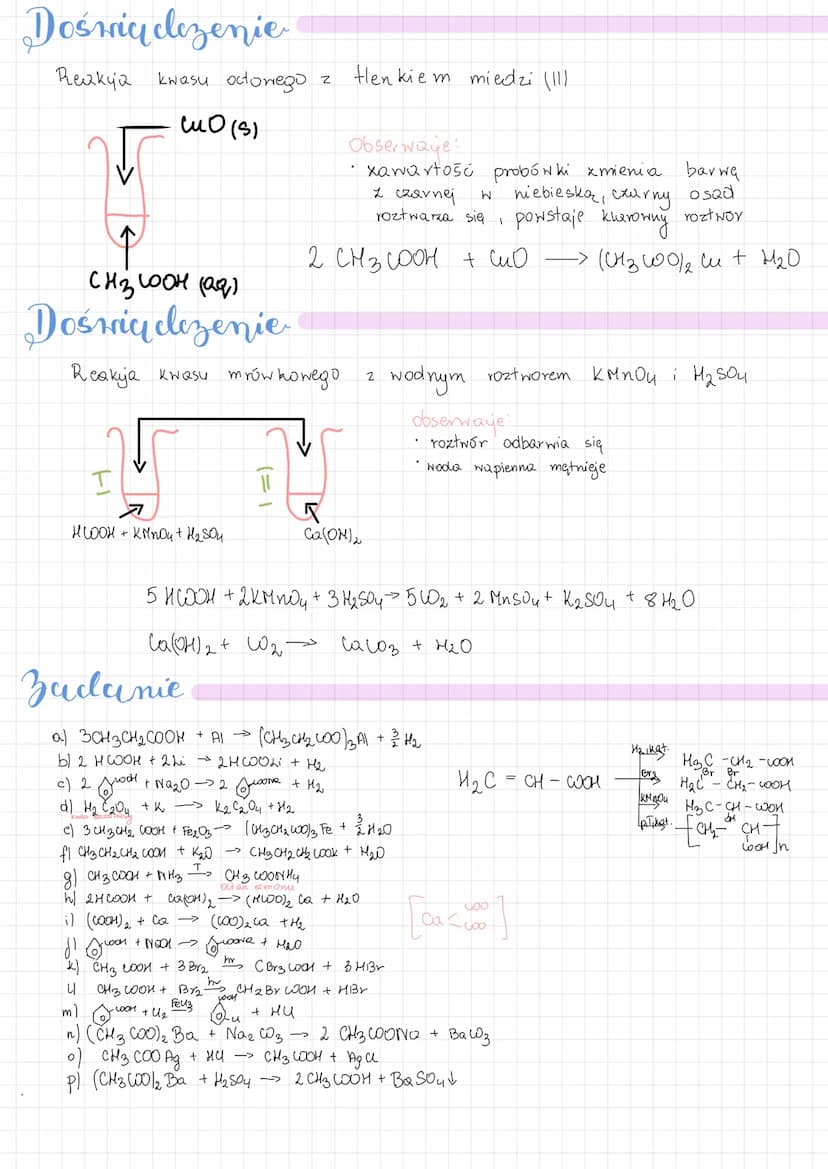 Doświadczenie
Reakcja kwasu octowego z tlenkiem miedzi (II)
CuO (s)
Obserwacje:
· zawartość probówki zmienia barwę
z czarnej w niebieską, czarny osad
roztwarza się, powstaje klarowny roztwór
2 CH3COOH + CuO → (CH3COO)2 Cu + H2O
CH3COOH (aq)
Doświadczenie
Reakcja kwasu mrówkowego z wodnym roztworem KMnO4 i H2SO4
obserwacje:
· roztwór odbarwia się
· woda wapienna mętnieje
I
II
HCOOH + KMnO4 + H2SO4
Ca(OH)2
5 HCOOH + 2KMnO4 + 3H2SO4 → 5CO2 + 2 MnSO4 + K2SO4 + 8H2O
Ca(OH)2 + CO2 → CaCO3 + H2O
Zadanie
a) 3CH3CH2COOH + Al → (CH3CH2COO)3Al + 3/2 H2
b) 2 HCOOH + 2Li → 2HCOOLi + H2
c) 2 COOH + Na2O → 2 COONa + H2
d) H2C2O4 + K → K2C2O4 + H2
e) 3CH3CH2COOH + Fe2O3 → (CH3CH2COO)3 Fe + 3/2 H2O
f) CH3CH2CH2COOH + K2O → CH3CH2CH2COOK + H2O
g) CH3COOH + NH3 T→ CH3COONH4
octan amonu
h) 2HCOOH + Ca(OH)2 → (HCOO)2 Ca + H2O
i) (COOH)2 + Ca → (COO)2Ca + H2
j) COOH + NaOH → COONa + H2O
k) CH3COOH + 3Br2 hν→ CBr3COOH + 3HBr
l) CH3COOH + Br2 hν→ CH2BrCOOH + HBr
m) COOH + Cl2 FeCl3→ COOH Cl + HCl
n) (CH3COO)2Ba + Na2CO3 → 2 CH3COONa + BaCO3
o) CH3COOAg + HCl → CH3COOH + AgCl
p) (CH3COO)2Ba + H2SO4 → 2CH3COOH + BaSO4↓
H2C = CH - COOH
H2, kat.
H3C - CH2 - COOH
Br2
Br Br
H2C - CH2 - COOH
KMnO4
H3C - CH - COOH
OH
p,T,kat.
[CH2 - CH]n
COOH
[Ca < COO COO]